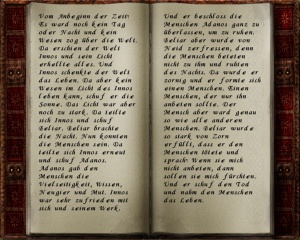 Vom Anbeginn der Zeit:
Es ward noch kein Tag
oder Nacht und kein
Wesen zog über die Welt.
Da erschien der Welt
Innos und sein Licht
erhellte alles. Und
Innos schenkte der Welt
das Leben. Da aber kein
Wesen im Licht des Innos
leben kann, schuf er die
Sonne. Das Licht war aber
noch zu stark. Da teilte
sich Innos und schuf
Beliar. Beliar brachte
die Nacht. Nun konnten
die Menschen sein. Da
teilte sich Innos erneut
und schuf Adanos.
Adanos gab den
Menschen die
Vielseitigkeit, Wissen,
Neugier und Mut. Innos
war sehr zufrieden mit
sich und seinem Werk.
Und er beschloss die
Menschen Adanos ganz zu
überlassen, um zu ruhen.
Beliar aber wurde von
Neid zerfressen, denn
die Menschen beteten
nicht zu ihm und ruhen
des Nachts. Da wurde er
zornig und er formte sich
einen Menschen. Einen
Menschen, der nur ihn
anbeten sollte. Der
Mensch aber ward genau
so wie alle anderen
Menschen. Beliar wurde
so stark von Zorn
erfüllt, dass er den
Menschen tötete und
sprach: Wenn sie mich
nicht anbeten, dann
sollen sie mich fürchten.
Und er schuf den Tod
und nahm den Menschen
das Leben.